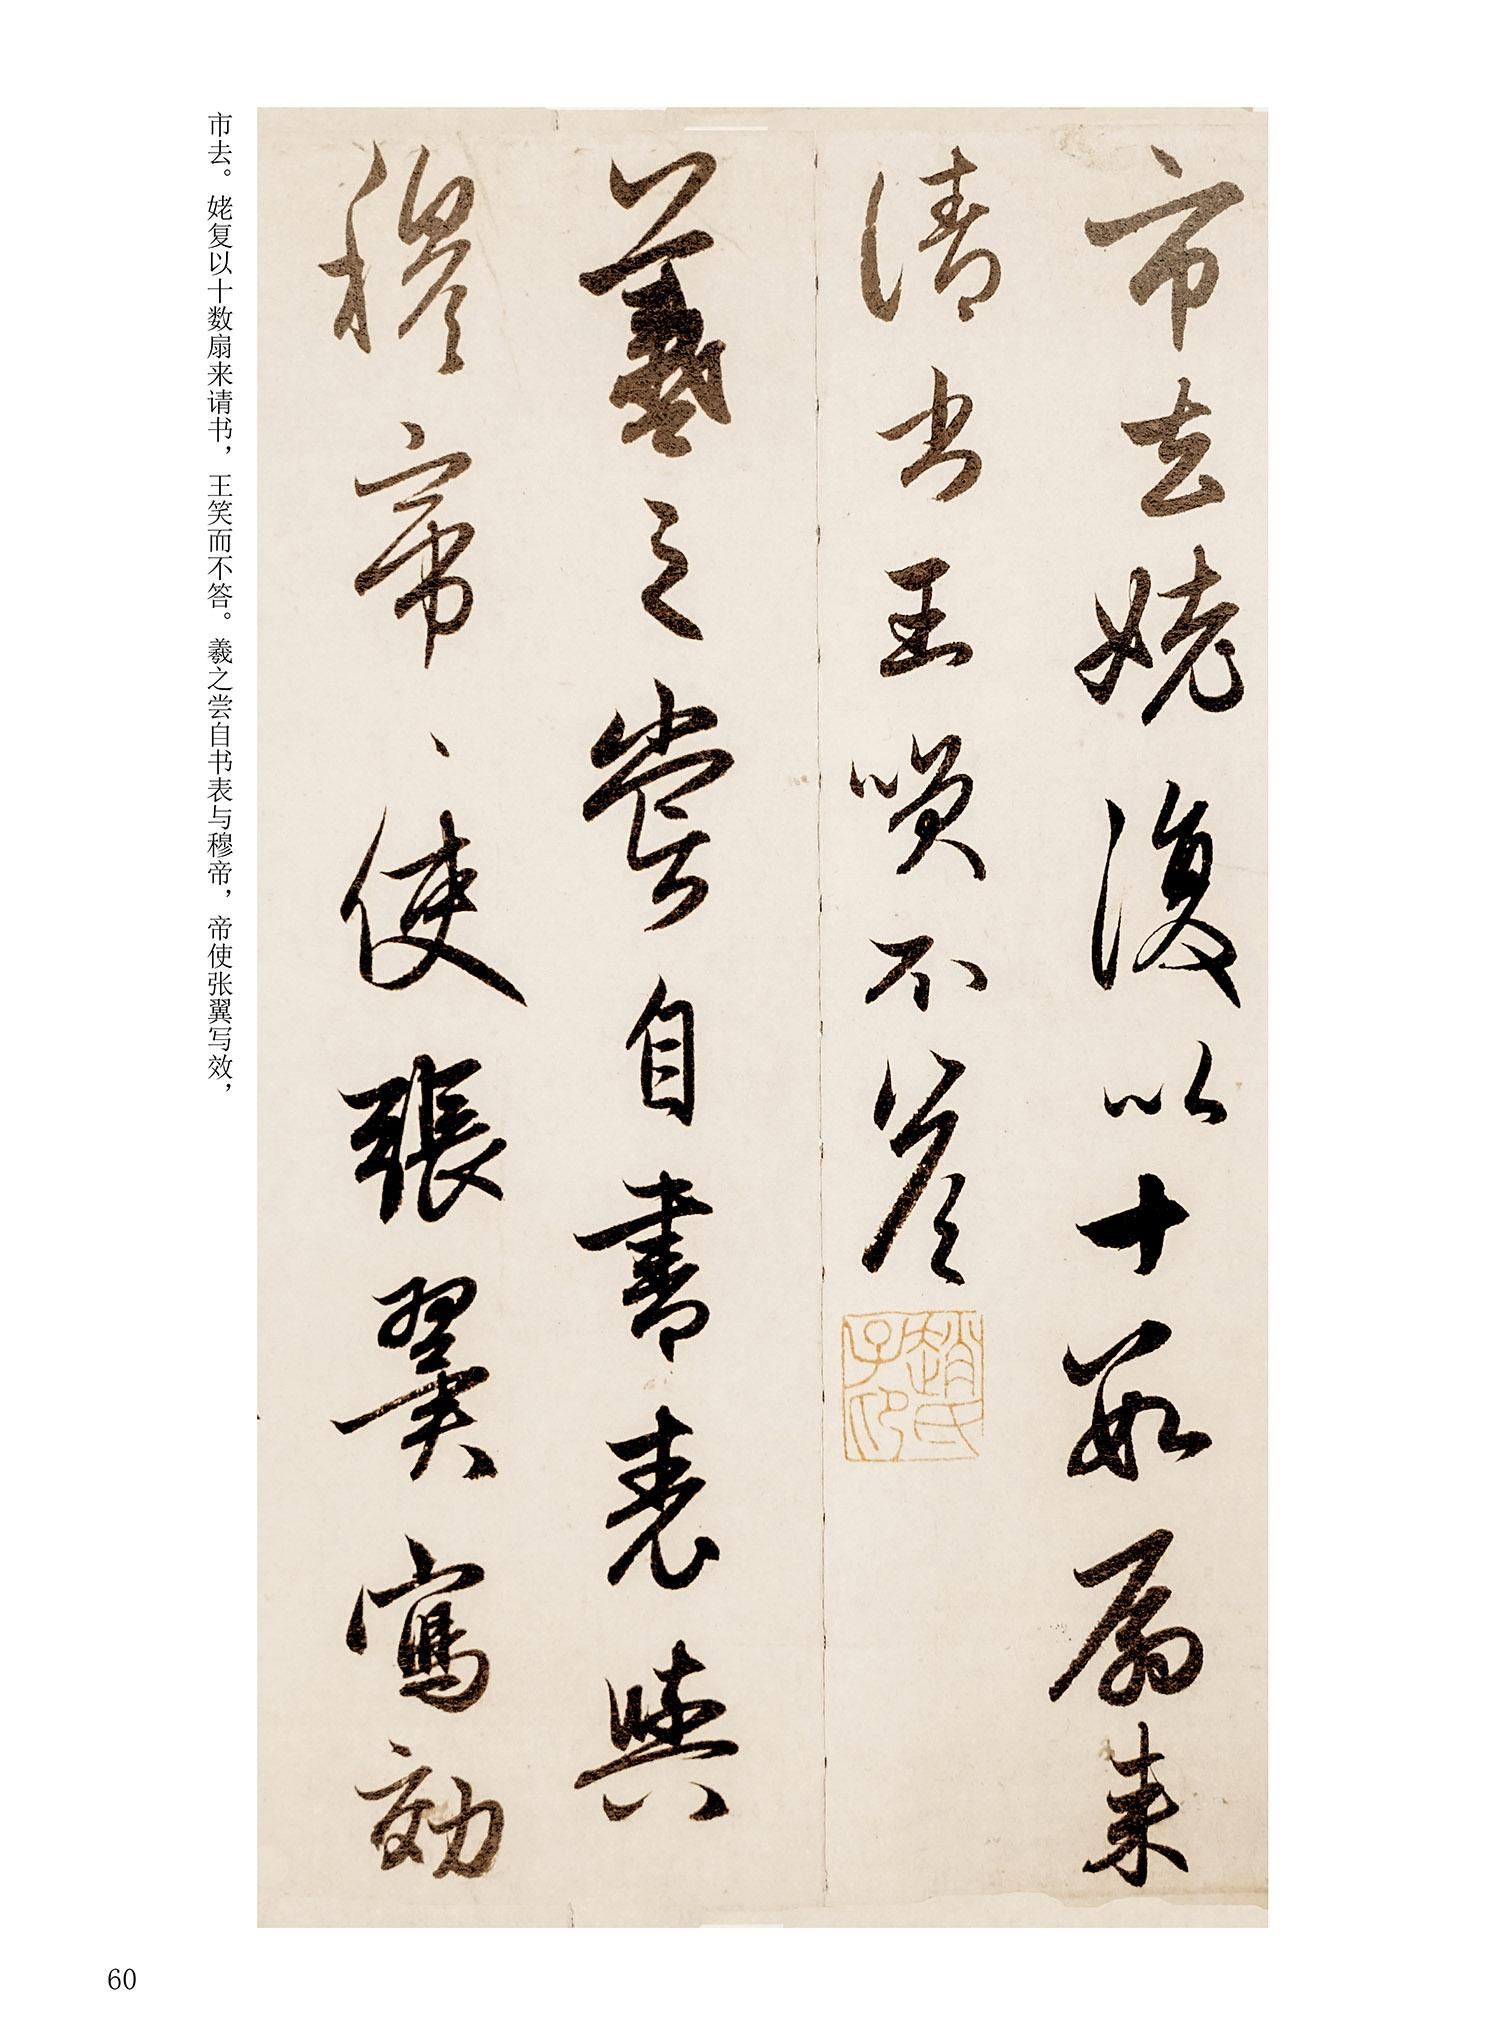 市去姥復以十数扇来
请书王笑不答
趙氏子印
羲之尝自書表與
穆帝、使張翼寫効
市去。姥复以十数扇来请书，王笑而不答。羲之尝自书表与穆帝，帝使张翼写效，
60